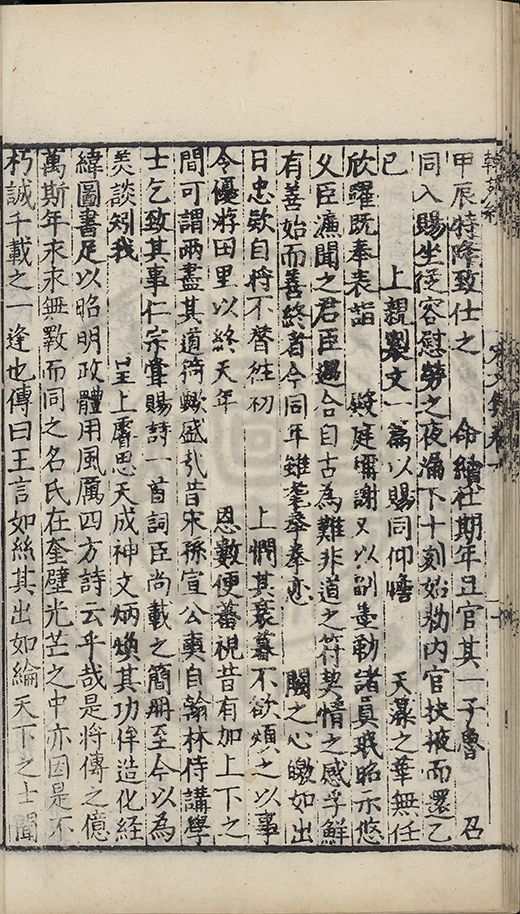 甲辰特降致仕之　命續杜期年且官其一子魯　召
同入賜坐從容慰勞之夜漏下十刻始勑內官扶掖而還乙
巳　上親製文一篇以賜同仰憺　天藻之華無任
欣躍旣奉表詣　廷嘣謝又以副墨勒諸貞珉昭示悠
父臣濂聞之君臣遇合自古為難非道之符契情之感孚鮮
有善始而善終者今同年雖耄拳拳恋　闕之心皦如出
日忠欵自将不替徃初　上憫其衰暮不欲煩之以事
今優游田里以終天年　恩數便蕃視昔有加上下之
間可謂兩盡其道符歟盛㢤昔宋孫宣公奭自翰林侍講學
士乞致其事仁宗嘗賜詩一首詞臣尚載之簡冊至今以為
羙談矧我　皇上睿思天成神文炳煥其功侔造化經
緯圖書足以昭明政體用風厲四方詩云乎哉是将傳之億
萬斯年求求無斁而同之名氏在奎壁光芒之中亦因是不
朽誠千載之一逢也傳曰王言如絲其出如綸天下之士聞